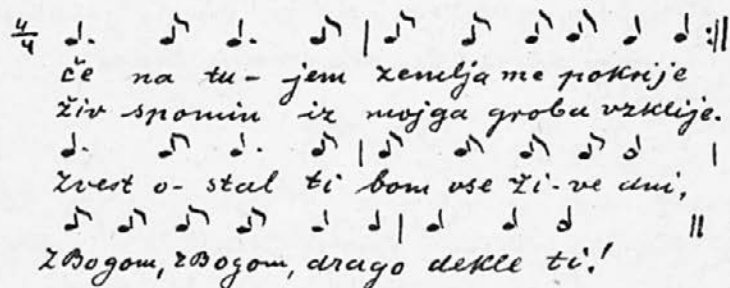 4/4
če na tu- jem zemlja me pokrije
živ spomin iz mojga groba vzklije.
zvest o- stal ti bom vse ži-ve dni,
z Bogom, z Bogom, drago dekle ti!